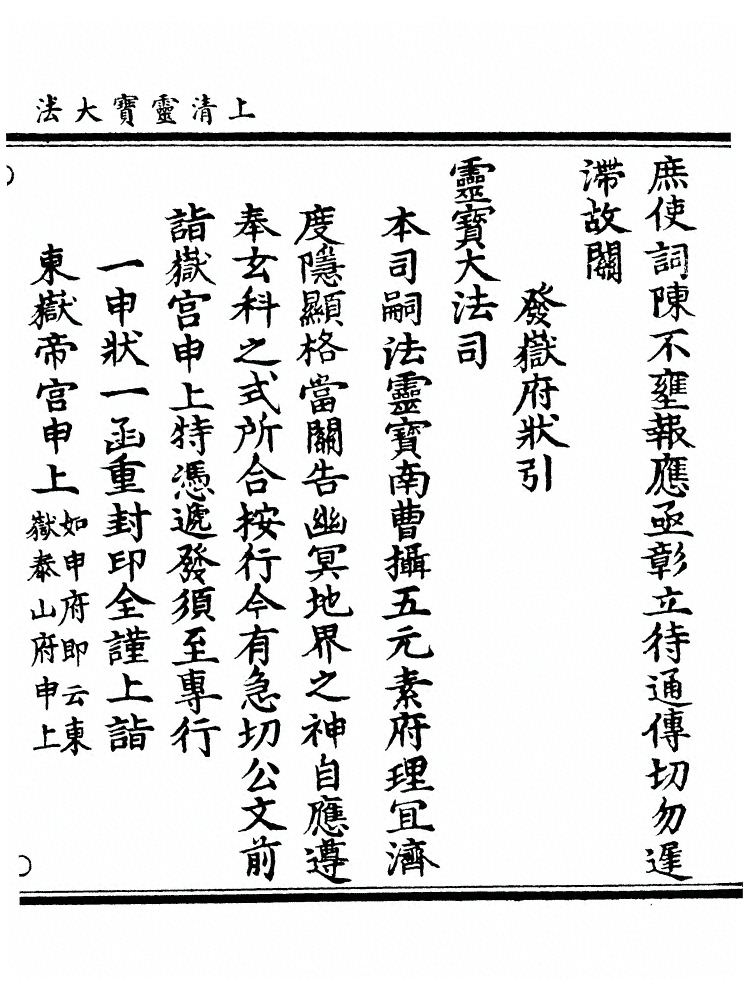 上清靈寶大法
庶使詞陳不壅報應亟彰立待通傳切勿遲
滯故關
發嶽府狀引
靈寶大法司
本司嗣法靈寶南曹攝五元素府理冝濟
度隱顯格當關告幽冥地界之神自應遵
奉玄科之式所合按行今有急切公文前
詣嶽宫申上特憑遞發須至專行
一申狀一函重封印全謹上詣
東嶽帝宫申上如申府即云東
嶽泰山府申上